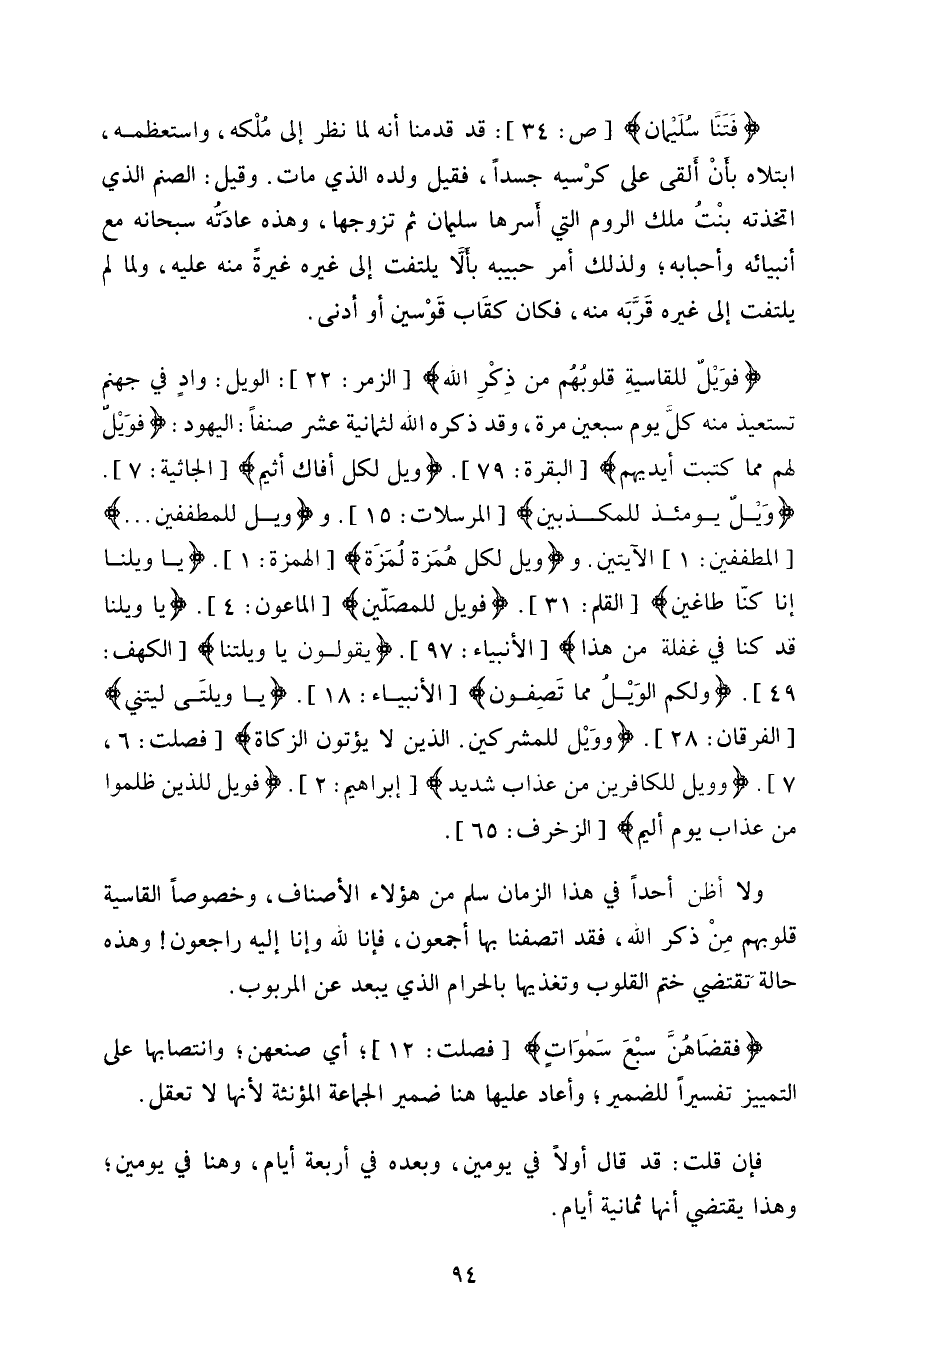 ﴿فَتَنَّا سُلَيْمان﴾ [ ص: ٣٤ ]: قد قدمنا أنه لما نظر إلى مُلْكه، واستعظمـه،
ابتلاه بأَنْ أَلقى على كرْسيه جسداً، فقيل ولده الذي مات. وقيل: الصنم الذي
اتخذته بنْتُ ملك الروم التي أَسرها سليمان ثم تزوجها، وهذه عادَتُه سبحانه مع
أنبيائه وأحبابه؛ ولذلك أمر حبيبه بأَلَّا يلتفت إلى غيره غيرةً منه عليه، ولما لم
يلتفت إلى غيره قَرَّبَه منه، فكان كقَاب قَوْسين أو أدنى.
﴿فوَيْلٌ للقاسيةِ قلوبُهُم من ذِكْرِ الله﴾ [ الزمر: ٢٢ ]: الويل: وادٍ في جهنم
تستعيذ منه كلَّ يوم سبعين مرة، وقد ذكره الله لثمانية عشر صنفاً: اليهود: ﴿فوَيْلٌ
لهم مما كتبت أيديهم﴾ [ البقرة: ٧٩ ]. ﴿ويل لكل أفاك أثيم﴾ [ الجاثية: ٧ ].
﴿وَيْـلٌ يـومئـذ للمكـذبين﴾ [ المرسلات: ١٥ ]. و ﴿ويـل للمطففين...﴾
[ المطففين: ١ ] الآيتين. و ﴿ويل لكل هُمَزة لُمَزَة﴾ [ الهمزة: ١ ]. ﴿يـا ويلنـا
إنا كنّا طاغين﴾ [ القلم: ٣١ ]. ﴿فويل للمصَلّين﴾ [ الماعون: ٤ ]. ﴿يا ويلنا
قد كنا في غفلة من هذا﴾ [ الأنبياء: ٩٧ ]. ﴿يقولـون يا ويلتنا﴾ [ الكهف:
٤٩ ]. ﴿ولكم الوَيْـلُ مما تَصِفـون﴾ [ الأنبيـاء: ١٨ ]. ﴿يـا ويلتَـى ليتني﴾
[ الفرقان: ٢٨ ]. ﴿ووَيْل للمشركين. الذين لا يؤتون الزكاة﴾ [ فصلت: ٦،
٧ ]. ﴿وويل للكافرين من عذاب شديد﴾ [ إبراهيم: ٢ ]. ﴿فويل للذين ظلموا
من عذاب يوم أليم﴾ [ الزخرف: ٦٥ ].
ولا أظن أحداً في هذا الزمان سلم من هؤلاء الأصناف، وخصوصاً القاسية
قلوبهم مِنْ ذكر الله، فقد اتصفنا بها أجمعون، فإنا لله وإنا إليه راجعون! وهذه
حالة تَقتضي ختم القلوب وتغذيها بالحرام الذي يبعد عن المربوب.
﴿فقضَاهُنَّ سبْعَ سَمٰوَاتٍ﴾ [ فصلت: ١٢ ]؛ أي صنعهن؛ وانتصابها على
التمييز تفسيراً للضمير؛ وأعاد عليها هنا ضمير الجماعة المؤنثة لأنها لا تعقل.
فإن قلت: قد قال أولاً في يومين، وبعده في أربعة أيام، وهنا في يومين؛
وهذا يقتضي أنها ثمانية أيام.
٩٤